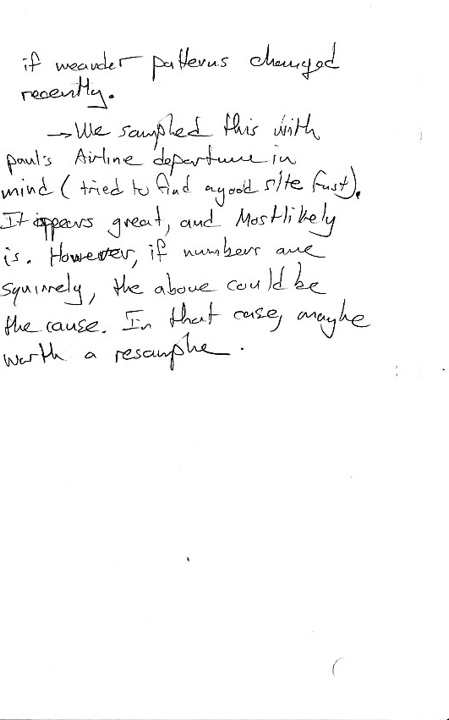 if meander patterns changed
recently.
→ We sampled this with
paul's Airline departure in
mind (tried to find a good site fast).
It appears great, and Mostlikely
is. However, if numbers are
squirrely, the above could be
the cause. In that case, maybe
worth a resample.